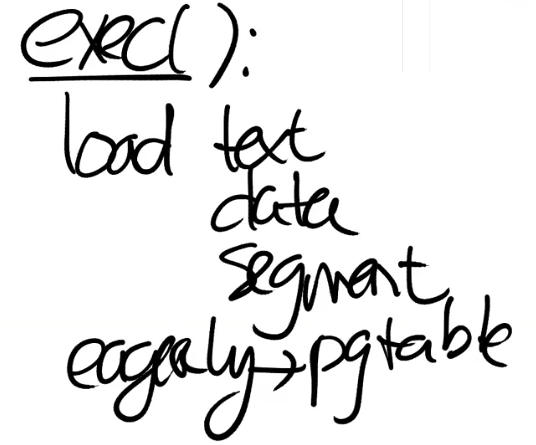 exec():
load text
data
segment
eagerly → pgtable